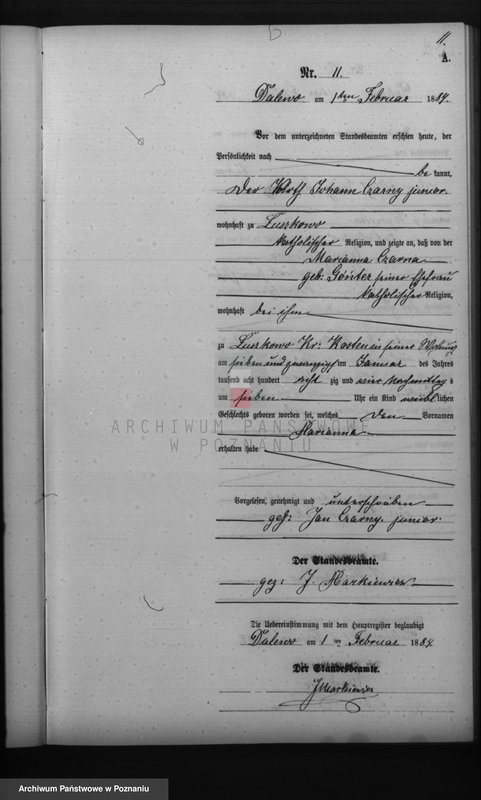 11.
A.
Nr. 11.
Dalewo am 1ten Februar 1884.
Vor dem unterzeichneten Standesbeamten erschien heute, der
Persönlichkeit nach
bekannt,
Der Wirth Johann Czarny junior.
wohnhaft zu Luszkowo
katholischer Religion, und zeigte an, daß von der
Marianna Czarna
geb: Günter seiner Ehefrau
katholischer Religion,
wohnhaft bei ihm
zu Luszkowo Kr: Kosten in seiner Wohnung
am sieben und zwanzigsten Januar des Jahres
tausend acht hundert acht zig und vier Nachmittags
um sieben Uhr ein Kind weiblichen
Geschlechts geboren worden sei, welches den Vornamen
Marianna
erhalten habe
ARCHIWUM PAŃSTWOWE
W POZNANIU
Vorgelesen, genehmigt und unterschrieben
gez: Jan Czarny junior.
Der Standesbeamte.
gez: J. Markiewicz
Die Uebereinstimmung mit dem Hauptregister beglaubigt
Dalewo am 1ten Februar 1884
Der Standesbeamte.
J Markiewicz
Archiwum Państwowe w Poznaniu